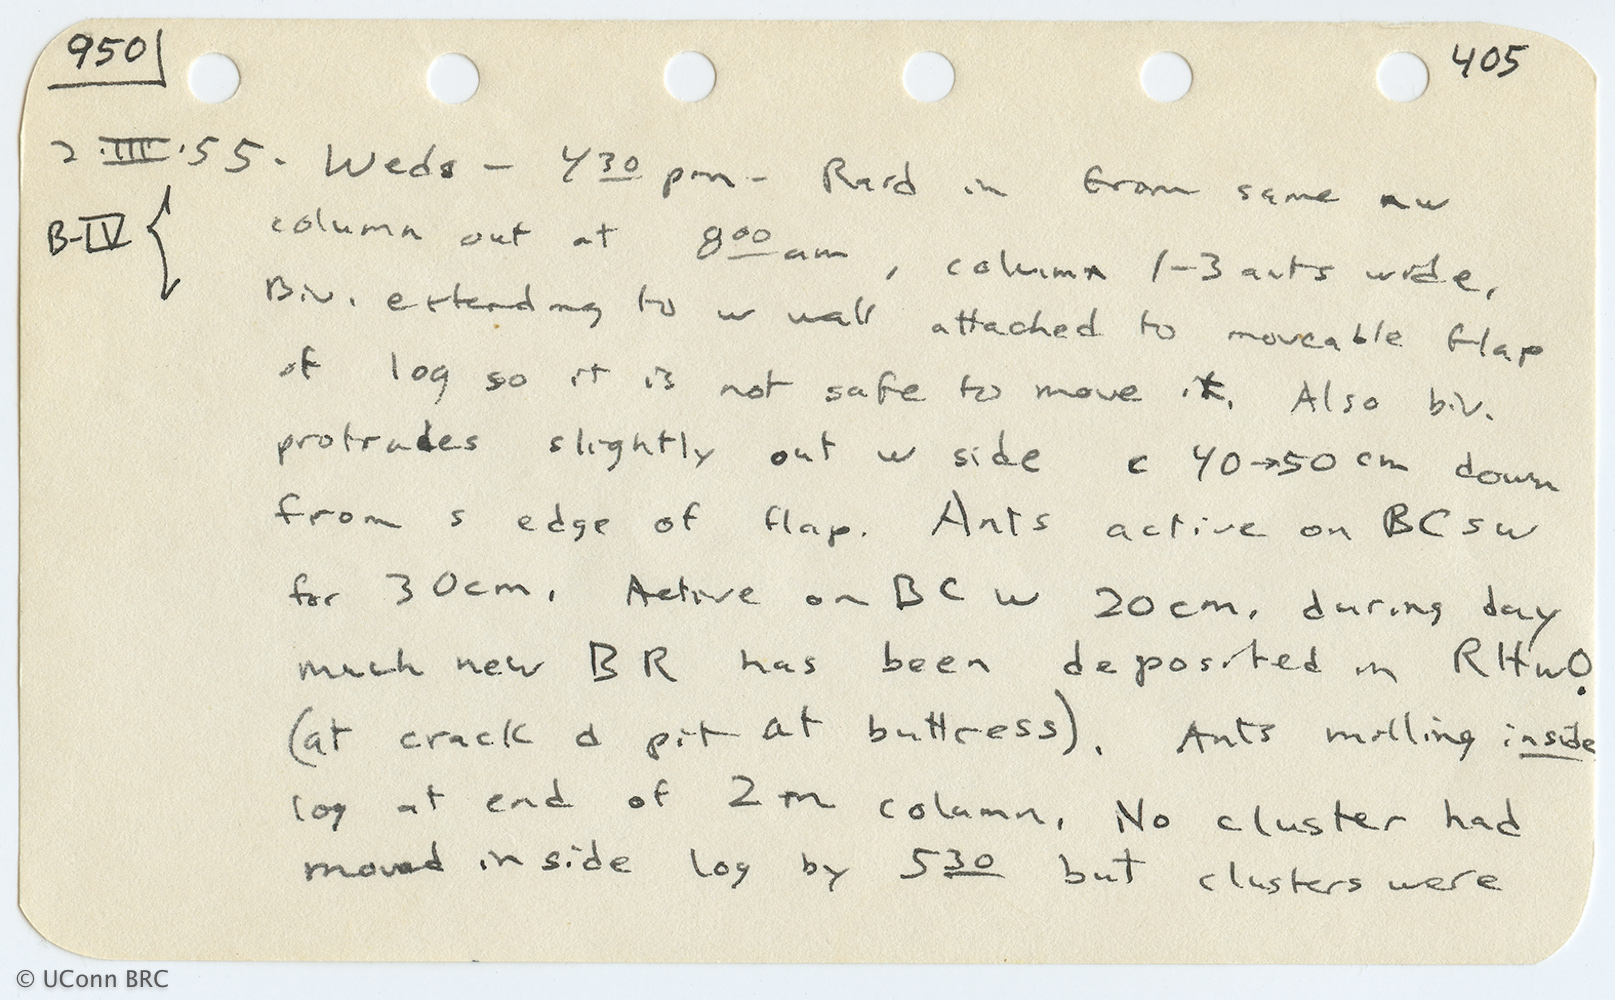 950 405
2·III·55. Weds - 4 30 pm - Raid in from same nw
B-IV { column out at 8 00 am, column 1-3 ants wide,
Biv. extending to w wall attached to moveable flap
of log so it is not safe to move it. Also biv.
protrudes slightly out w side c 40→50 cm down
from s edge of flap. Ants active on BC sw
for 30cm. Active on BC w 20cm. during day
much new BR has been deposited in RHwO.
(at crack d pit at buttress). Ants milling inside
log at end of 2m column. No cluster had
moved inside log by 5 30 but clusters were
© UConn BRC